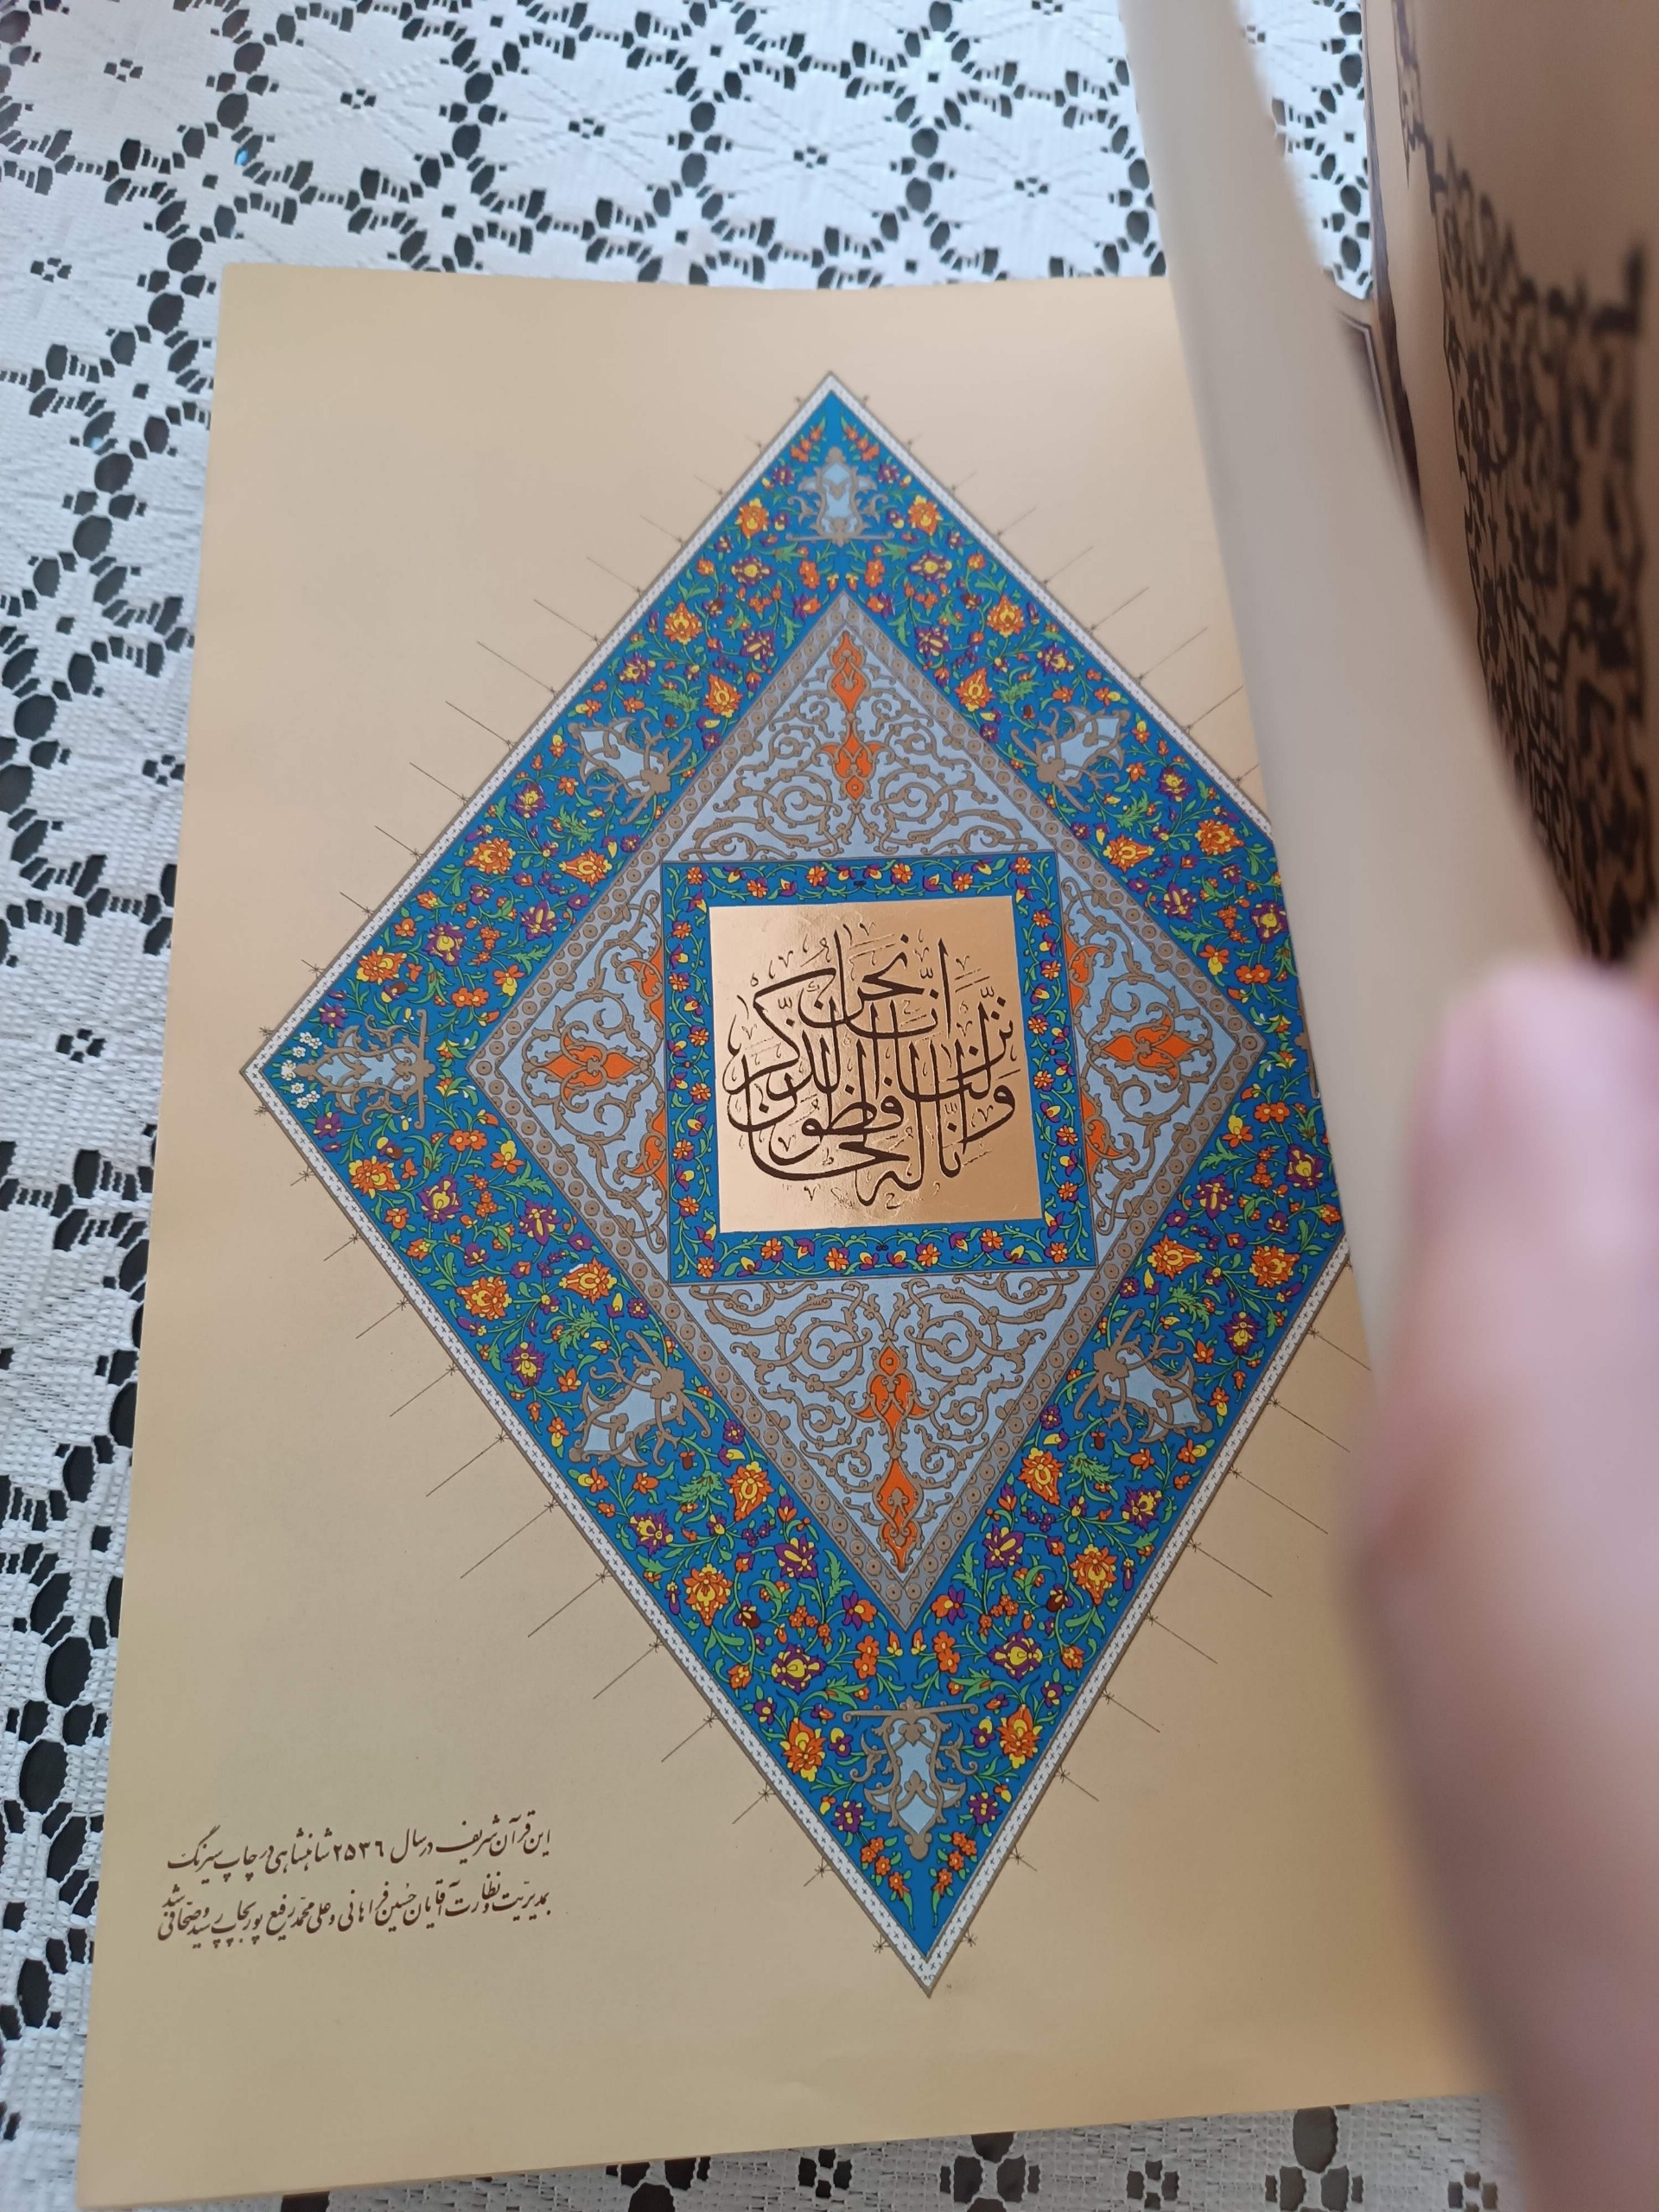 انا نحن
نزلنا الذكر
وانا له لحافظون
این قرآن شریف در سال ۲۵۳۶ شاهنشاهی در چاپ سیرنگ
بمدیریت و نظارت آقایان حسین فراهانی و علی محمد رفیع پور بچاپ رسید و صحافی شد